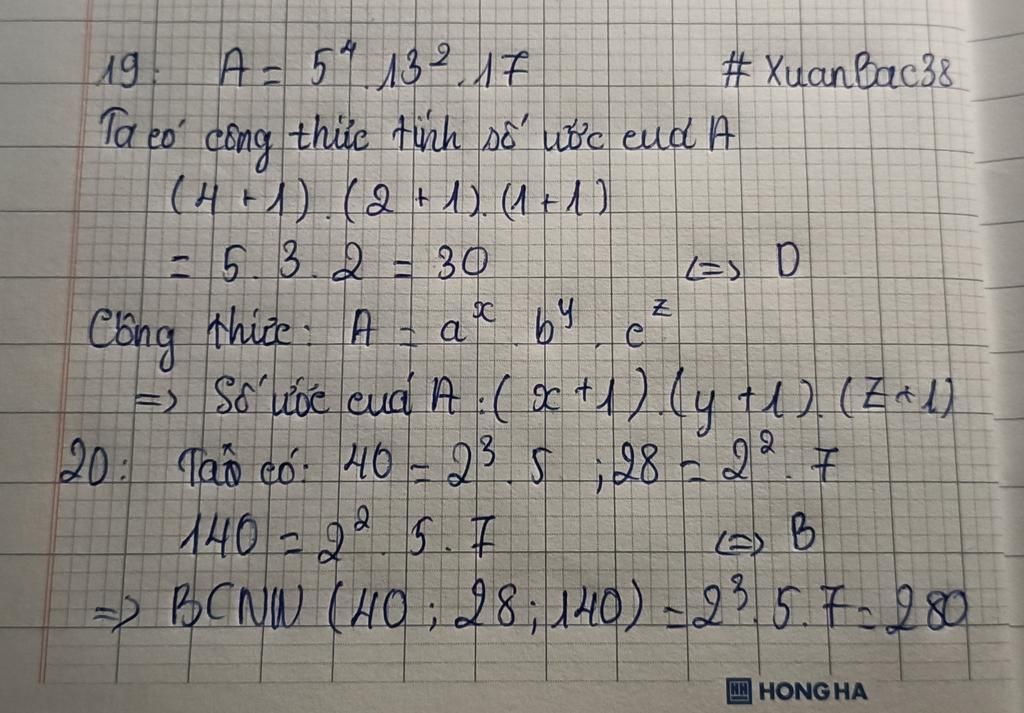 19: A = 5⁴.13².17 # XuanBac38
Ta có công thức tính số ước của A
(4 + 1).(2 + 1).(1 + 1)
= 5.3.2 = 30 <=> D
Công thức: A = aˣ.bʸ.cᶻ
=> Số ước của A:(x+1).(y+1).(z+1)
20: Ta có: 40 = 2³.5 ; 28 = 2².7
140 = 2².5.7 <=> B
=> BCNN (40 ; 28 ; 140) = 2³.5.7 = 280
HH HONG HA